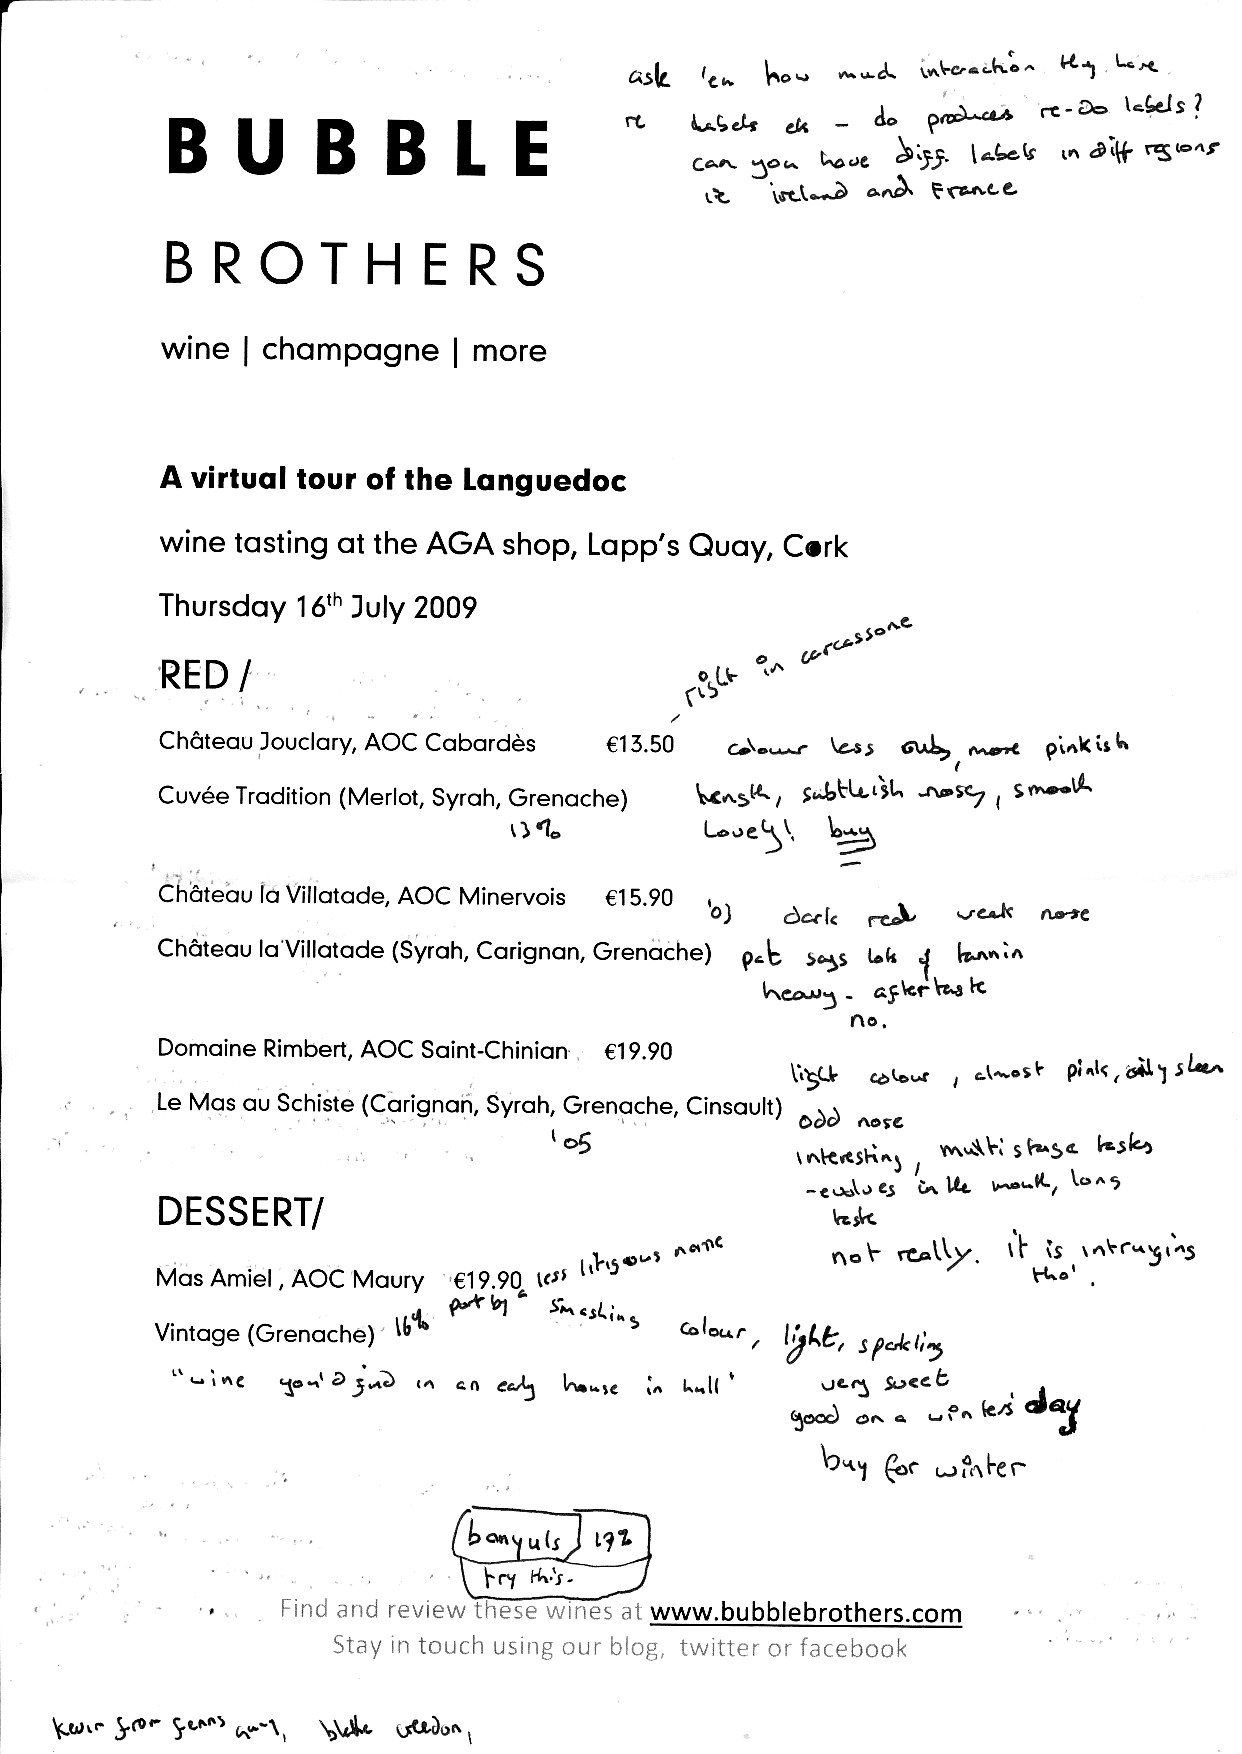 ask 'em how much interaction they have
re labels etc - do producers re-Do labels?
can you have diff. labels in diff regions
ie ireland and France
BUBBLE
BROTHERS
wine | champagne | more
A virtual tour of the Languedoc
wine tasting at the AGA shop, Lapp's Quay, Cork
Thursday 16th July 2009
right in carcassone
RED /
Château Jouclary, AOC Cabardès €13.50 colour less ruby, more pinkish
Cuvée Tradition (Merlot, Syrah, Grenache) length, subtleish nosey, smooth
13% Lovely! buy
Château la Villatade, AOC Minervois €15.90 '03 dark red weak nose
Château la Villatade (Syrah, Carignan, Grenache) pat says lots of tannin
heavy - aftertaste
no.
Domaine Rimbert, AOC Saint-Chinian €19.90 light colour, almost pink, oily sheen
Le Mas au Schiste (Carignan, Syrah, Grenache, Cinsault) odd nose
'05 interesting, multi stage tastes
- evolves in the mouth, long
taste
DESSERT/
not really. it is intruging
tho'.
Mas Amiel , AOC Maury €19.90 less litigous name
Vintage (Grenache) 16% port by a smashing colour, light, sparkling
"wine you'd find in an early house in hull" very sweet
good on a winters' day
buy for winter
banyuls 172
try this.
Find and review these wines at www.bubblebrothers.com
Stay in touch using our blog, twitter or facebook
kevin from fenns quay, creedon,